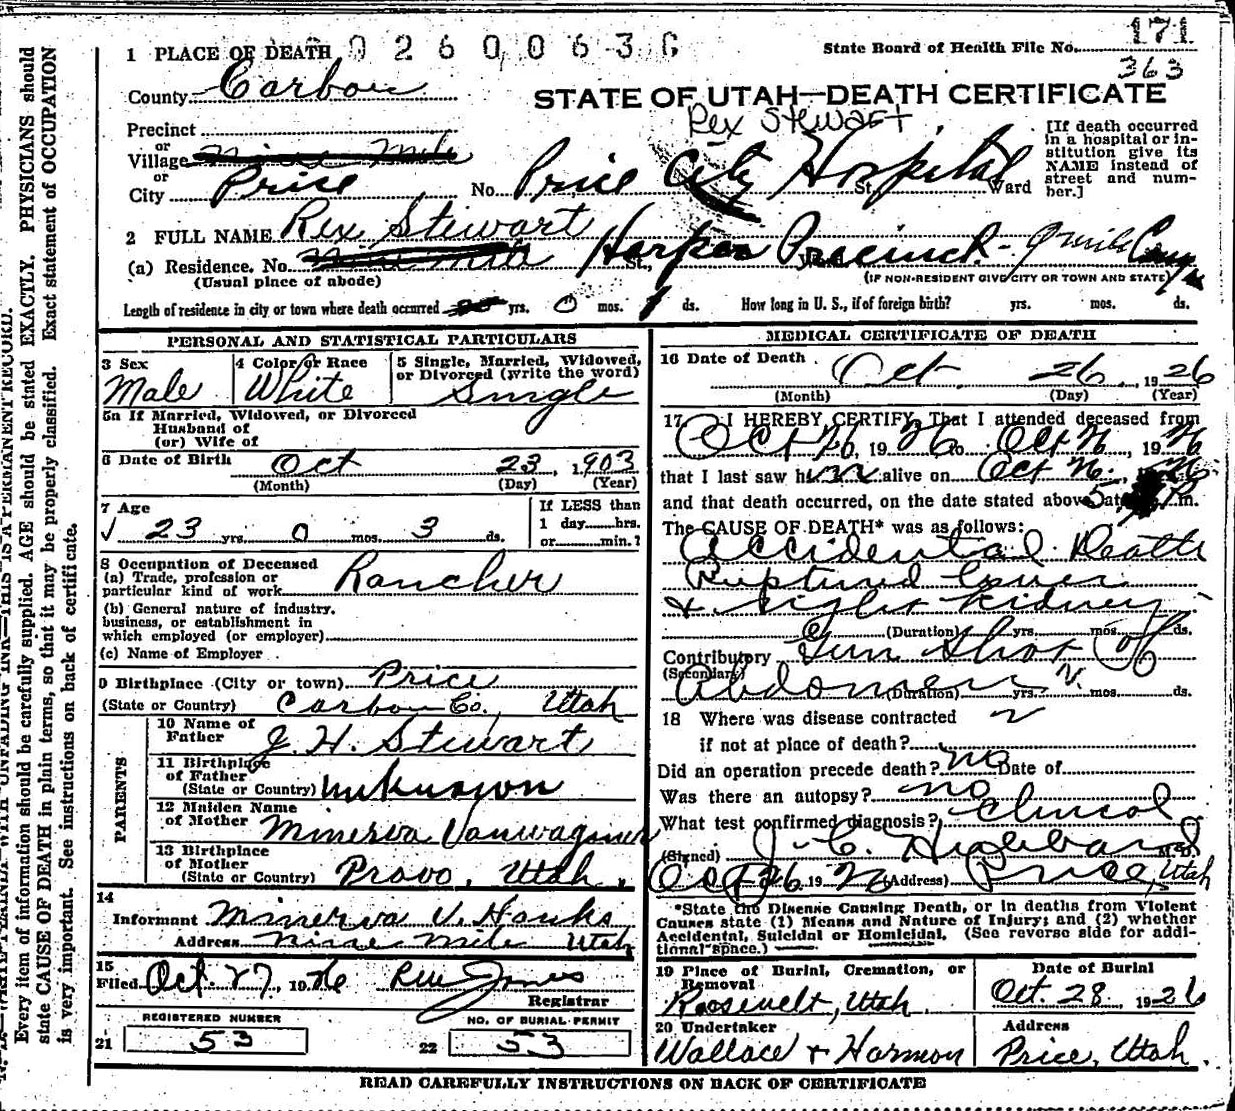 171
0 2 6 0 0 6 3 6
1 PLACE OF DEATH
State Board of Health File No.
363
County Carbon
STATE OF UTAH—DEATH CERTIFICATE
Rex Stewart
Precinct
or
Village Nine Mile
or
City Price No. Price City Hospital St. Ward
[If death occurred in a hospital or institution give its NAME instead of street and number.]
2 FULL NAME Rex Stewart
(a) Residence. No. Harper Precinct - 9 mile
(Usual place of abode)
(IF NON-RESIDENT GIVE CITY OR TOWN AND STATE)
Length of residence in city or town where death occurred yrs. 0 mos. 1 ds. How long in U. S., if of foreign birth? yrs. mos. ds.
PERSONAL AND STATISTICAL PARTICULARS
3 Sex
Male
4 Color or Race
White
5 Single, Married, Widowed, or Divorced (write the word)
Single
5a If Married, Widowed, or Divorced
Husband of
(or) Wife of
6 Date of Birth Oct 23, 1903
(Month) (Day) (Year)
7 Age
23 yrs. 0 mos. 3 ds.
If LESS than
1 day......hrs.
or......min.?
8 Occupation of Deceased
(a) Trade, profession or
particular kind of work Rancher
(b) General nature of industry,
business, or establishment in
which employed (or employer)
(c) Name of Employer
9 Birthplace (City or town) Price
(State or Country) Carbon Co., Utah
PARENTS
10 Name of
Father J. H. Stewart
11 Birthplace
of Father
(State or Country) Unknown
12 Maiden Name
of Mother Minerva Vanwagoner
13 Birthplace
of Mother
(State or Country) Provo, Utah.
14
Informant Minerva V. Hanks
Address Nine Mile Utah
15
Filed Oct. 27, 1926
Registrar
REGISTERED NUMBER
21 53
NO. OF BURIAL PERMIT
22 53
MEDICAL CERTIFICATE OF DEATH
16 Date of Death Oct. 26, 1926
(Month) (Day) (Year)
17 I HEREBY CERTIFY, That I attended deceased from
Oct 26, 1926 to Oct 26, 1926
that I last saw him alive on Oct 26, 1926
and that death occurred, on the date stated above, at 5 P m.
The CAUSE OF DEATH* was as follows:
Accidental Death
Ruptured Liver
& Right Kidney
(Duration) yrs. mos. ds.
Contributory Gun Shot of
(Secondary)
Abdomen (Duration) yrs. mos. ds.
18 Where was disease contracted
if not at place of death?
Did an operation precede death? no Date of
Was there an autopsy? no
What test confirmed diagnosis? Clinical
(Signed) J. C. Hubbard M. D.
Oct 26 1926 (Address) Price, Utah
*State the Disease Causing Death, or in deaths from Violent
Causes state (1) Means and Nature of Injury; and (2) whether
Accidental, Suicidal or Homicidal. (See reverse side for addi-
tional space.)
19 Place of Burial, Cremation, or
Removal
Roosevelt, Utah
Date of Burial
Oct. 28, 1926
20 Undertaker
Wallace & Harmon
Address
Price, Utah.
READ CAREFULLY INSTRUCTIONS ON BACK OF CERTIFICATE
Every item of information should be carefully supplied. AGE should be stated EXACTLY. PHYSICIANS should
state CAUSE OF DEATH in plain terms, so that it may be properly classified. Exact statement of OCCUPATION
is very important. See instructions on back of certificate.